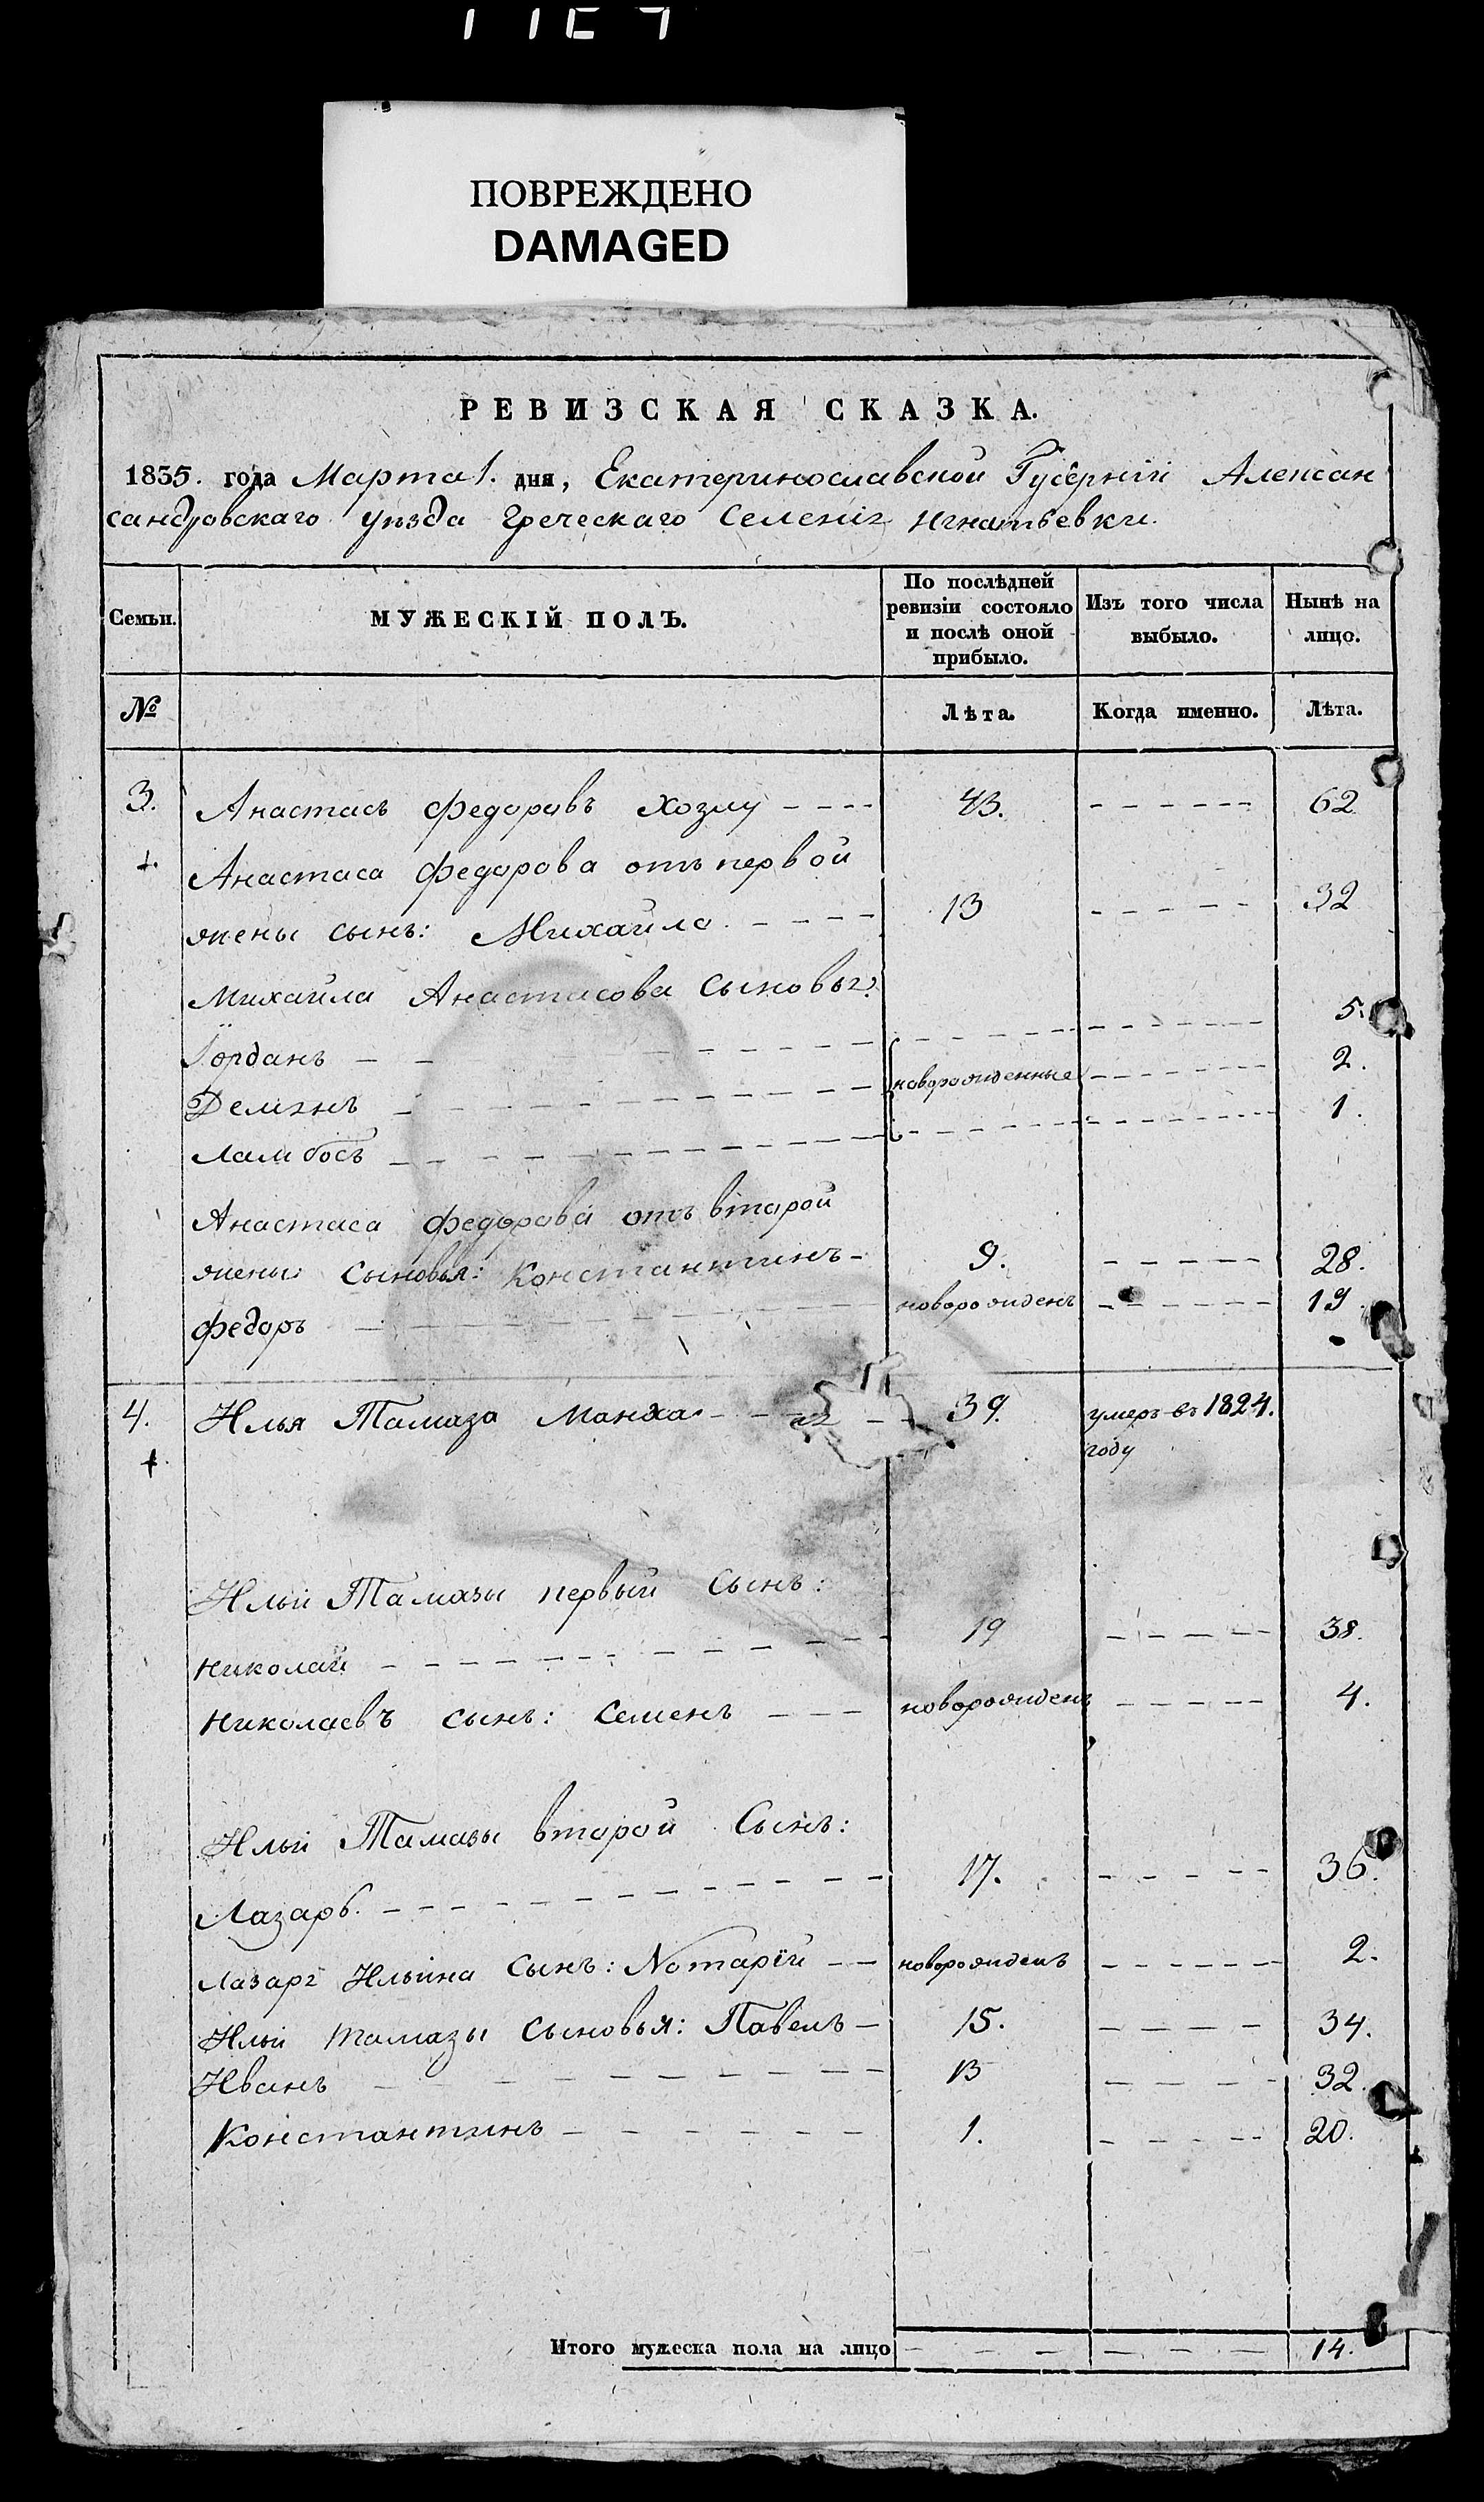 ПОВРЕЖДЕНО
DAMAGED
РЕВИЗСКАЯ СКАЗКА.
1835. года Марта 1. дня, Екатеринославской Губерніи Алексан
сандровскаго уѣзда Греческаго Селенія Игнатьевки.
Семьи.
МУЖЕСКІЙ ПОЛЪ.
По послѣдней ревизіи состояло и послѣ оной прибыло.
Изъ того числа выбыло.
Нынѣ на лицо.
№
Лѣта.
Когда именно.
Лѣта.
3. Анастасъ Федоровъ Хозму - - - - 43. - - - - - - 62
Анастаса Федорова отъ первой
жены сынъ: Михайло. - - - - 13 - - - - - 32
Михайла Анастасова Сыновья:
Іорданъ - - - - - - - - - - 5.
Демянъ - - - - - - новорожденные - - - - - - 2.
Ламбосъ - - - - - - - - - - 1.
Анастаса Федорова отъ второй
жены Сыновья: Константинъ - 9. - - - - - 28.
Федоръ - - - - - - новорожденъ - - - - - - 19
4. Илья Тамаза Манжа - - - 39. умеръ въ 1824.
году
Ильи Тамазы первый Сынъ:
Николай - - - - - - - - - 19 - - - - - 38.
Николаевъ сынъ: Семенъ - - - новорожденъ - - - - - 4.
Ильи Тамазы второй Сынъ:
Лазарь. - - - - - - - - - - 17. - - - - - 36.
Лазаря Ильина Сынъ: Нотарій - - новорожденъ - - - - - - 2.
Ильи Тамазы Сыновья: Павелъ - 15. - - - - 34.
Иванъ - - - - - - - - 13 - - - - 32.
Константинъ - - - - - - - 1. - - - - - 20.
Итого мужеска пола на лицо - - - - - - - 14.